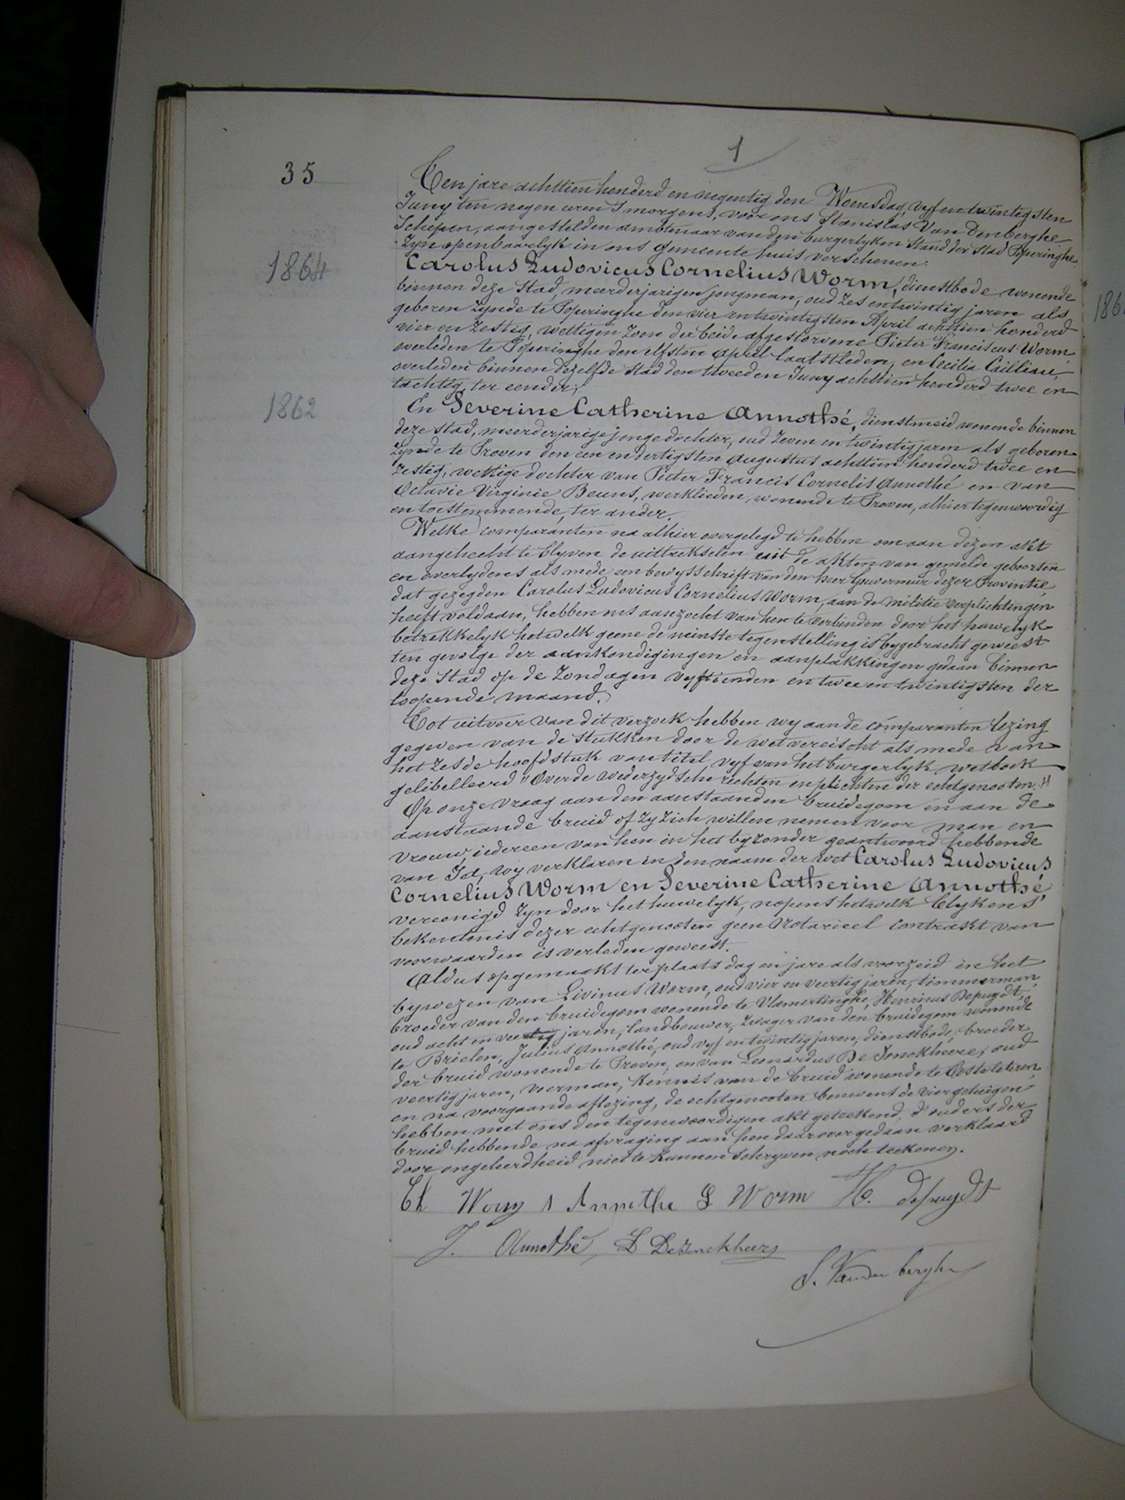 1
35
Ten jare achttien honderd en negentig den Woensdag vyf en twintigsten
Juny ten negen uren 's morgens, voor ons Stanislas Van Denberghe
Schepen, aangestelden ambtenaar van den burgerlyken Stand der Stad Poperinghe
zyn openbaarlyk in ons gemeente huis verschenen:
1864
Carolus Ludovicus Cornelius Worm, dienstbode wonende
binnen deze Stad, meerderjarigen jongman, oud zes en twintig jaren als
geboren zynde te Poperinghe den vier en twintigsten April achttien honderd
vier en zestig, wettigen zoon der beide afgestorvene Pieter Franciscus Worm
overleden te Poperinghe den elfsten april laatstleden, en Cecilia Cailliau,
overleden binnen dezelfde Stad den tweeden Juny achttien honderd twee en
tachtig, ter eender;
1862
En Severine Catherine Annothé, dienstmeid wonende binnen
deze Stad, meerderjarige jonge dochter, oud zeven en twintig jaren als geboren
zynde te Proven den een en dertigsten Augustus achttien honderd twee en
zestig, wettige dochter van Pieter Francis Cornelis Annothé en van
Octavie Virginie Beuns, werklieden, wonende te Proven, alhier tegenwoordig
en toestemmende, ter ander.
Welke comparanten na alhier overgelegd te hebben om aan dezen akt
aangehecht te blyven de uittrekselen uit de akten van gemelde geboorten
en overlydens als mede een bewysschrift van den heer Gouverneur dezer Provintie
dat gezegden Carolus Ludovicus Cornelius Worm, aan de militie verplichtingen
heeft voldaan, hebben ons aanzocht van hen te verbinden door het huwelyk
betrekkelyk hetwelk geene de minste tegenstelling is bygebracht geweest
ten gevolge der aankondigingen en aanplakkingen gedaan binnen
deze Stad op de Zondagen vyftienden en twee en twintigsten der
loopende maand.
Tot uitvoer van dit verzoek hebben wy aan de comparanten lezing
gegeven van de stukken door de wet vereischt als mede van
het zesde hoofdstuk van titel vyf van het burgerlyk wetboek
gelibelleerd "Over de wederzydsche rechten en plichten der echtgenooten."
Op onze vraag aan den aanstaanden bruidegom en aan de
aanstaande bruid of zy zich willen nemen voor man en
vrouw, iedereen van hen in het byzonder geantwoord hebbende
van Ja, wy verklaren in den naam der wet Carolus Ludovicus
Cornelius Worm en Severine Catherine Annothé
vereenigd zyn door het huwelyk, nopens hetwelk blykens
bekentenis dezer echtgenooten geen Notarieel contrakt van
voorwaarden is verleden geweest.
Aldus opgemaakt ter plaats dag en jare als voorzeid in het
bywezen van Livinus Worm, oud vier en veertig jaren, timmerman,
broeder van den bruidegom wonende te Vlamertinghe, Henricus Depuydt,
oud acht en veertig jaren, landbouwer, zwager van den bruidegom wonende
te Brielen, Julius Annothé, oud vyf en twintig jaren, dienstbode, broeder
der bruid wonende te Proven, en van Leonardus De Jonckheere, oud
veertig jaren, voerman, kennis van de bruid wonende te Oostvleteren
en na voorgaande aflezing, de echtgenooten benevens de vier getuigen
hebben met ons den tegenwoordigen akt geteekend, d'ouders der
bruid hebbende na afvraging aan hen daarover gedaan verklaard
door ongeleerdheid niet te kunnen schryven noch teekenen.
Ch Worm S Annothe L Worm H. depuydt
J. Annothé L DeJonckheere
S. Vanden berghe